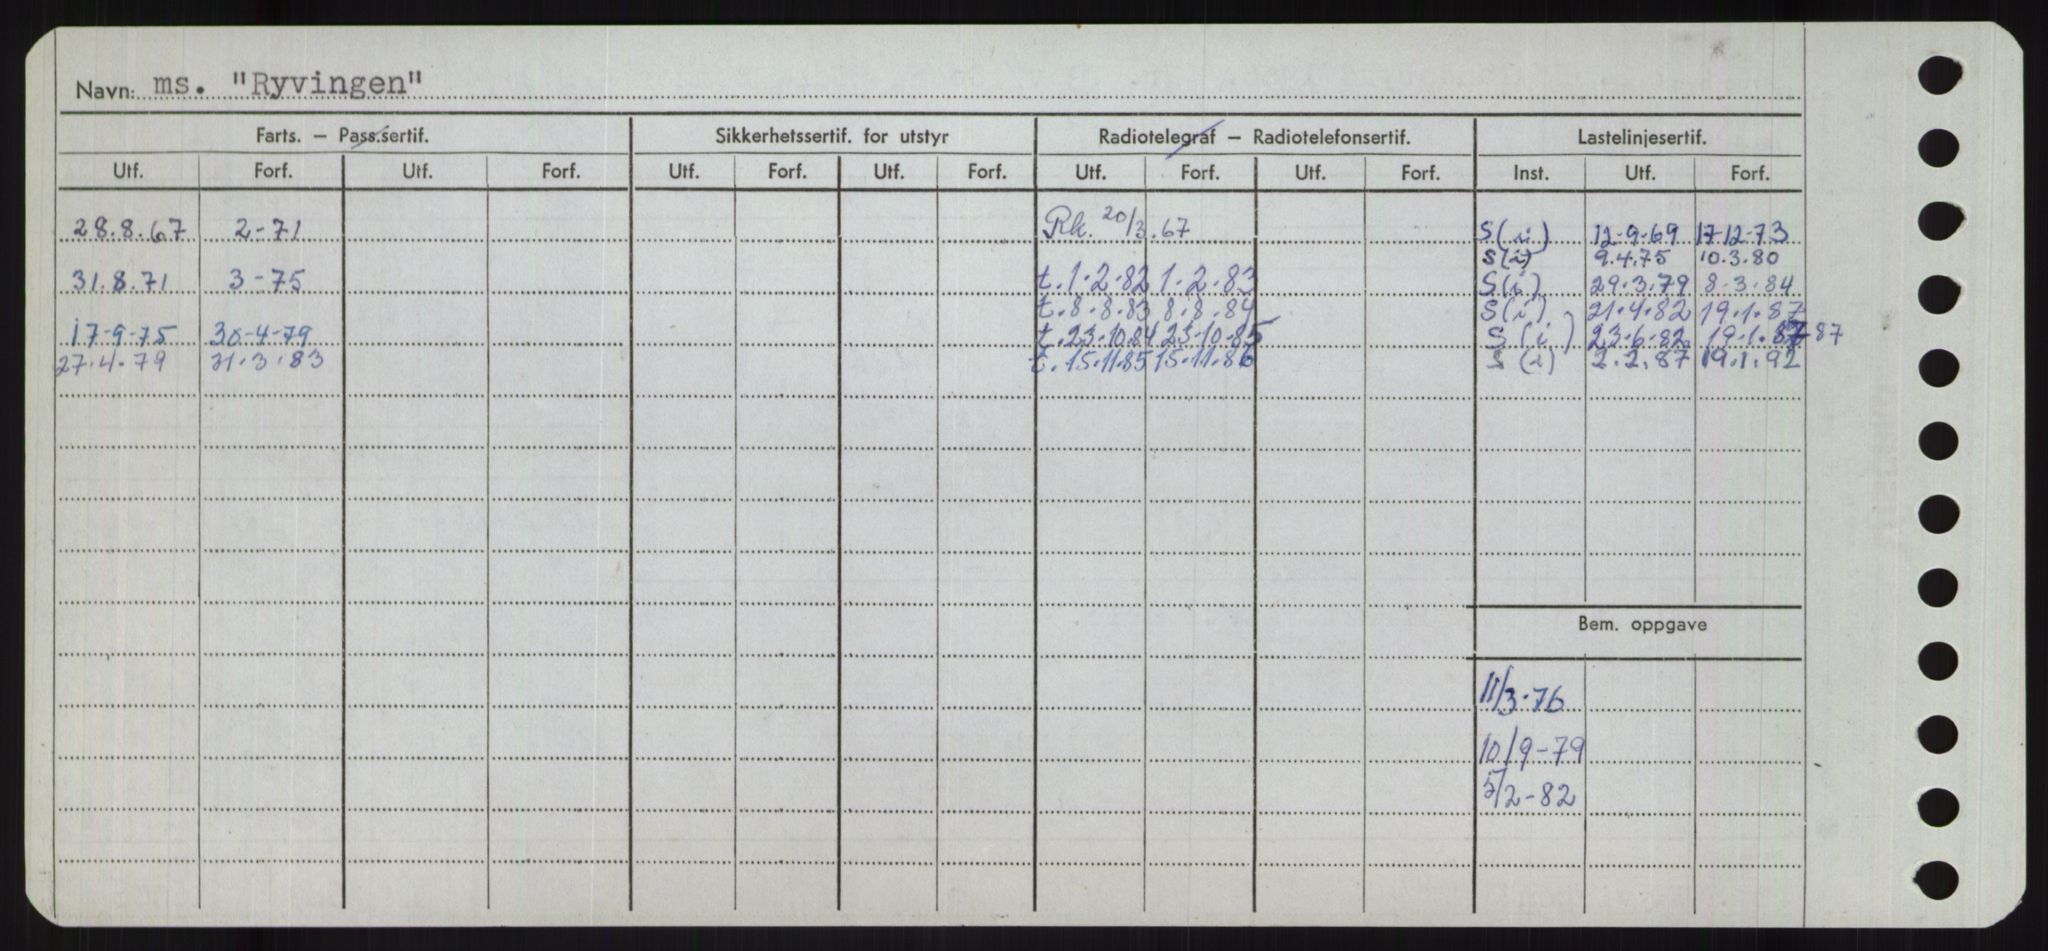 Navn: ms. "Ryvingen"
Farts. — Pass.sertif. Sikkerhetssertif. for utstyr Radiotelegraf — Radiotelefonsertif. Lastelinjesertif.
Utf. Forf. Utf. Forf. Utf. Forf. Utf. Forf. Utf. Forf. Utf. Forf. Inst. Utf. Forf.
28.8.67 2-71 Rk. 20/3.67 S(i) 12-9-69 17-12-73
S(i) 9.4.75 10.3.80
31.8.71 3-75 t.1.2.82 1.2.83 S(i) 29.3.79 8.3.84
t.8.8.83 8.8.84 S(i) 21.4.82 19.1.87
17-9-75 30-4-79 t.23.10.84 23.10.85 S(i) 23.6.82 19.1.87
27.4.79 31.3.83 t.15.11.85 15.11.86 S(i) 2.2.87 19.1.92
Bem. oppgave
11/3-76
10/9-79
5/2-82